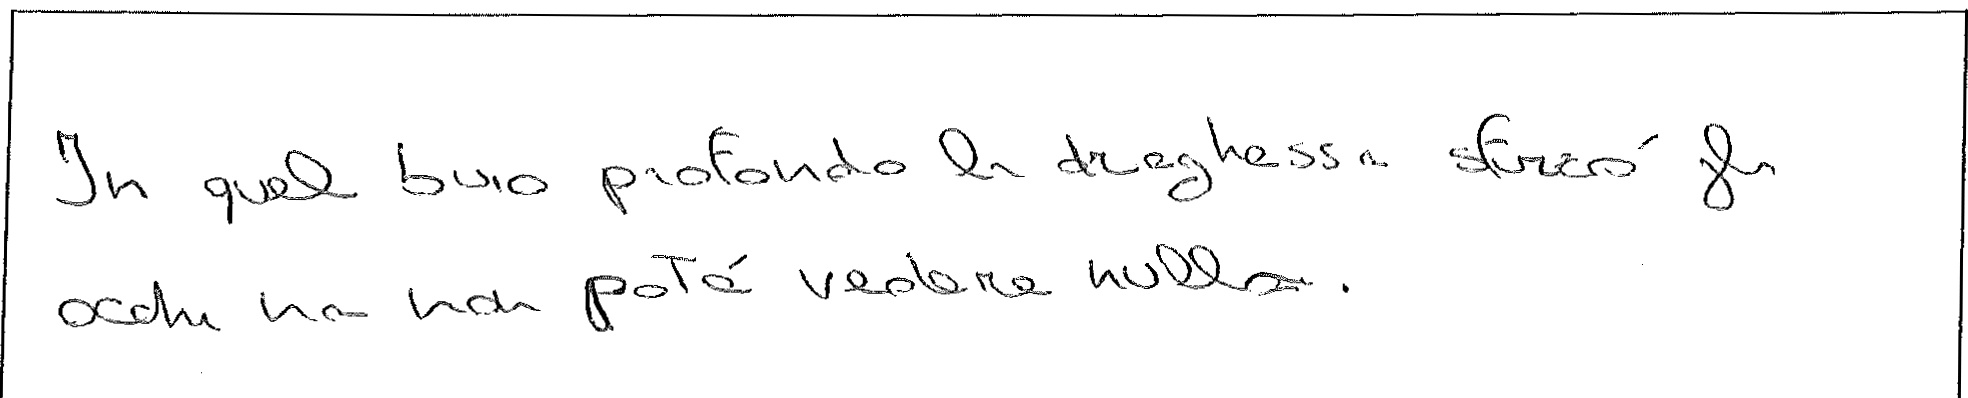 In quel buio profondo la draghessa sforzó gli
occhi ma non poté vedere nulla.